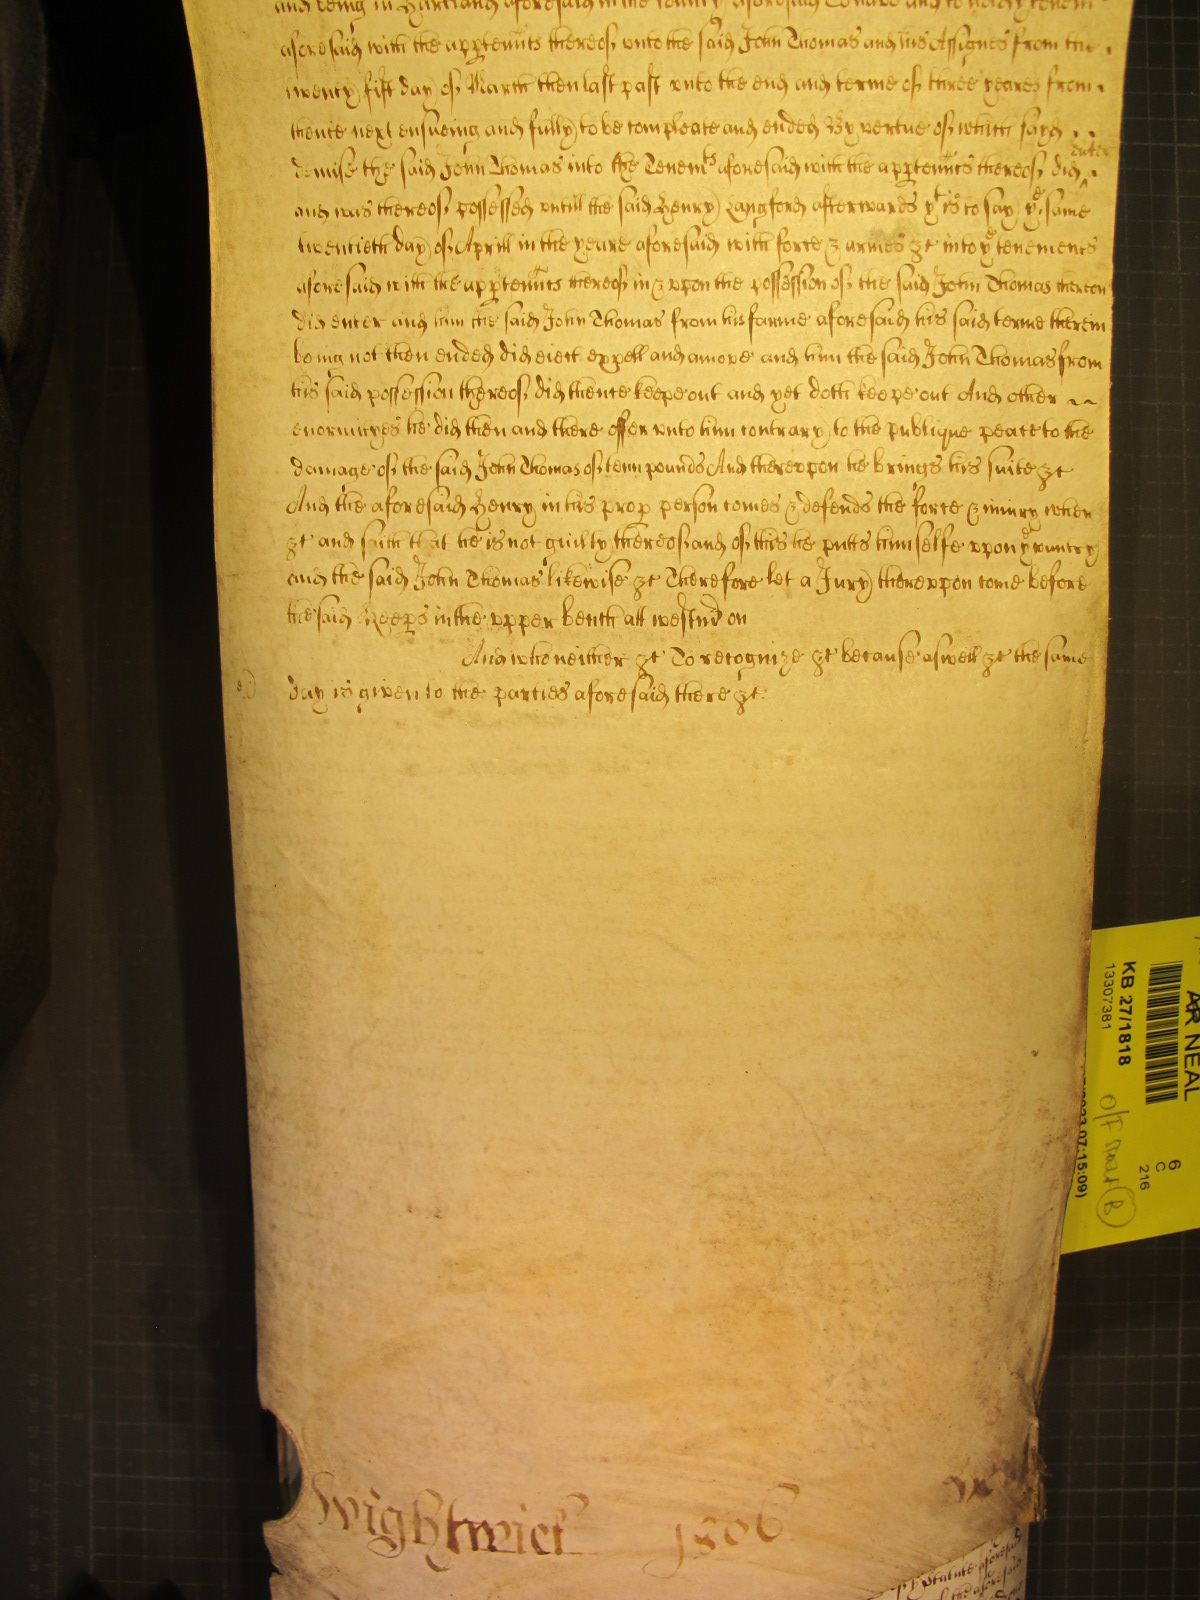 and being in Hartland aforesaid in the County aforesaid To have and to hold y tenem
aforesaid with the apptenncs thereof unto the said John Thomas and his Assignes from the
twenty fift day of March then last past unto the end and terme of three yeares from
thence next ensueing and fully to be compleate and ended By vertue of which sayd
enter
demise the said John Thomas into the Tenemts aforesaid with the apptenncs thereof did
and was thereof possessed untill the said Henry Langford afterwards yt is to say ye same
twentieth day of Aprill in the yeare aforesaid with force & armes &c into ye tenements
aforesaid with the apptenncs thereof in & upon the possession of the said John Thomas thereon
did enter and him the said John Thomas from his farme aforesaid his said terme therein
being not then ended did eiect expell and amove and him the said John Thomas from
his said possession thereof did thence keepe out and yet doth keepe out And other
enormityes he did then and there offer unto him contrary to the publique peace to the
damage of the said John Thomas of tenn pounds And thereupon he brings his suite &c
And the aforesaid Henry in his prop person comes & defends the force & iniury when
&c and saith that he is not guilty thereof and of this he putts himselfe upon ye cuntry
and the said John Thomas likewise &c Therefore let a Jury thereupon come before
the said Keeps in the upper bench att westmr on
And who neither &c To recognize &c because aswell &c the same
day is given to the parties aforesaid there &c
Wightwick 1806
Statute aforesaid
the aforesaid
AR NEAL
KB 27/1818
13307381
6
C
216
07:15:09)
B